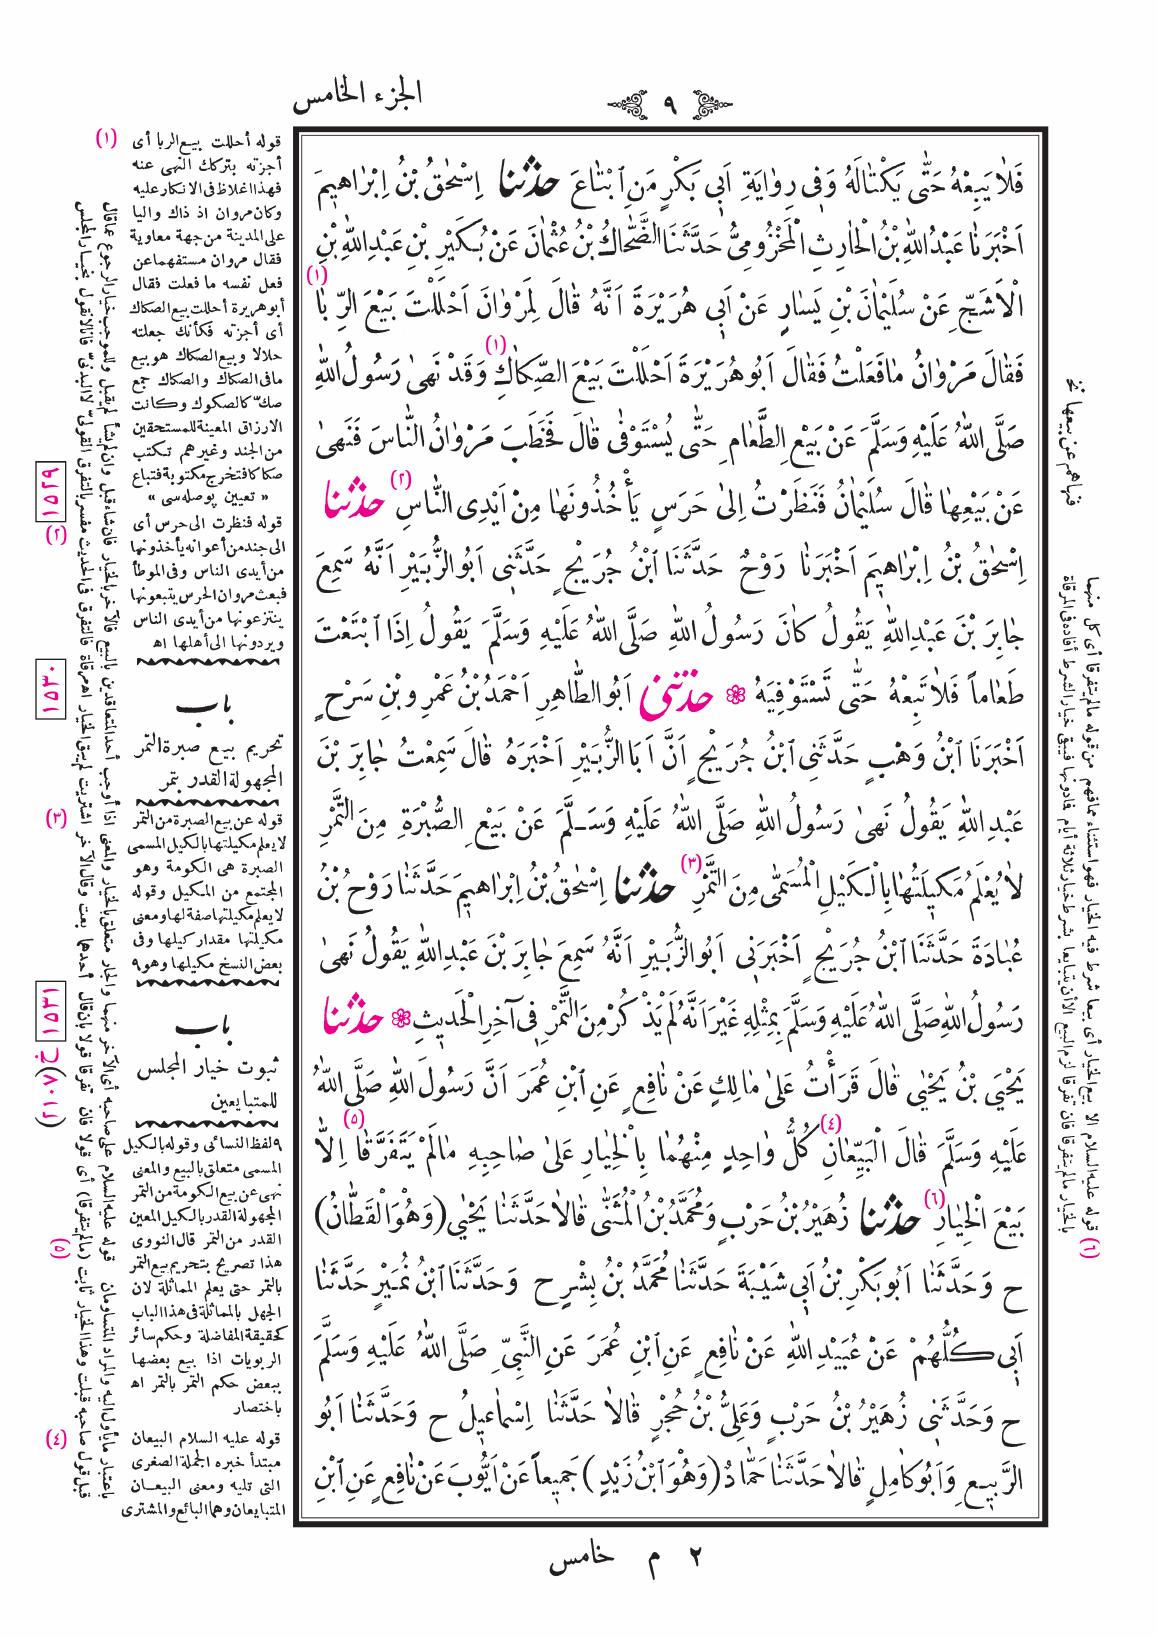 الجزء الخامس
٩
فَلَا يَبِعْهُ حَتَّى يَكْتَالَهُ وَفِي رِوَايَةِ أَبِي بَكْرٍ مَنِ ابْتَاعَ حدثنا إِسْحٰقُ بْنُ إِبْرَاهِيمَ
أَخْبَرَنَا عَبْدُ اللهِ بْنُ الْحَارِثِ الْمَخْزُومِيُّ حَدَّثَنَا الضَّحَّاكُ بْنُ عُثْمَانَ عَنْ بُكَيْرِ بْنِ عَبْدِ اللهِ بْنِ
الْأَشَجِّ عَنْ سُلَيْمَانَ بْنِ يَسَارٍ عَنْ أَبِي هُرَيْرَةَ أَنَّهُ قَالَ لِمَرْوَانَ أَحْلَلْتَ بَيْعَ الرِّبَا (١)
فَقَالَ مَرْوَانُ مَا فَعَلْتُ فَقَالَ أَبُو هُرَيْرَةَ أَحْلَلْتَ بَيْعَ الصِّكَاكِ (١) وَقَدْ نَهَى رَسُولُ اللهِ
صَلَّى اللهُ عَلَيْهِ وَسَلَّمَ عَنْ بَيْعِ الطَّعَامِ حَتَّى يُسْتَوْفَى قَالَ فَخَطَبَ مَرْوَانُ النَّاسَ فَنَهَى
عَنْ بَيْعِهَا قَالَ سُلَيْمَانُ فَنَظَرْتُ إِلَى حَرَسٍ يَأْخُذُونَهَا مِنْ أَيْدِي النَّاسِ (٢) حدثنا
إِسْحٰقُ بْنُ إِبْرَاهِيمَ أَخْبَرَنَا رَوْحٌ حَدَّثَنَا ابْنُ جُرَيْجٍ حَدَّثَنِي أَبُو الزُّبَيْرِ أَنَّهُ سَمِعَ
جَابِرَ بْنَ عَبْدِ اللهِ يَقُولُ كَانَ رَسُولُ اللهِ صَلَّى اللهُ عَلَيْهِ وَسَلَّمَ يَقُولُ إِذَا ابْتَعْتَ
طَعَاماً فَلَا تَبِعْهُ حَتَّى تَسْتَوْفِيَهُ ❁ حدثني أَبُو الطَّاهِرِ أَحْمَدُ بْنُ عَمْرِو بْنِ سَرْحٍ
أَخْبَرَنَا ابْنُ وَهْبٍ حَدَّثَنِي ابْنُ جُرَيْجٍ أَنَّ أَبَا الزُّبَيْرِ أَخْبَرَهُ قَالَ سَمِعْتُ جَابِرَ بْنَ
عَبْدِ اللهِ يَقُولُ نَهَى رَسُولُ اللهِ صَلَّى اللهُ عَلَيْهِ وَسَلَّمَ عَنْ بَيْعِ الصُّبْرَةِ مِنَ التَّمْرِ
لَا يُعْلَمُ مَكِيلَتُهَا بِالْكَيْلِ الْمُسَمَّى مِنَ التَّمْرِ (٣) حدثنا إِسْحٰقُ بْنُ إِبْرَاهِيمَ حَدَّثَنَا رَوْحُ بْنُ
عُبَادَةَ حَدَّثَنَا ابْنُ جُرَيْجٍ أَخْبَرَنِي أَبُو الزُّبَيْرِ أَنَّهُ سَمِعَ جَابِرَ بْنَ عَبْدِ اللهِ يَقُولُ نَهَى
رَسُولُ اللهِ صَلَّى اللهُ عَلَيْهِ وَسَلَّمَ بِمِثْلِهِ غَيْرَ أَنَّهُ لَمْ يَذْكُرْ مِنَ التَّمْرِ فِي آخِرِ الْحَدِيثِ ❁ حدثنا
يَحْيَى بْنُ يَحْيَى قَالَ قَرَأْتُ عَلَى مَالِكٍ عَنْ نَافِعٍ عَنِ ابْنِ عُمَرَ أَنَّ رَسُولَ اللهِ صَلَّى اللهُ
عَلَيْهِ وَسَلَّمَ قَالَ الْبَيِّعَانِ (٤) كُلُّ وَاحِدٍ مِنْهُمَا بِالْخِيَارِ عَلَى صَاحِبِهِ مَا لَمْ يَتَفَرَّقَا (٥) إِلَّا
بَيْعَ الْخِيَارِ (٦) حدثنا زُهَيْرُ بْنُ حَرْبٍ وَمُحَمَّدُ بْنُ الْمُثَنَّى قَالَا حَدَّثَنَا يَحْيَى (وَهُوَ الْقَطَّانُ)
ح وَحَدَّثَنَا أَبُو بَكْرِ بْنُ أَبِي شَيْبَةَ حَدَّثَنَا مُحَمَّدُ بْنُ بِشْرٍ ح وَحَدَّثَنَا ابْنُ نُمَيْرٍ حَدَّثَنَا
أَبِي كُلُّهُمْ عَنْ عُبَيْدِ اللهِ عَنْ نَافِعٍ عَنِ ابْنِ عُمَرَ عَنِ النَّبِيِّ صَلَّى اللهُ عَلَيْهِ وَسَلَّمَ
ح وَحَدَّثَنِي زُهَيْرُ بْنُ حَرْبٍ وَعَلِيُّ بْنُ حُجْرٍ قَالَا حَدَّثَنَا إِسْمَاعِيلُ ح وَحَدَّثَنَا أَبُو
الرَّبِيعِ وَأَبُو كَامِلٍ قَالَا حَدَّثَنَا حَمَّادٌ (وَهُوَ ابْنُ زَيْدٍ) جَمِيعاً عَنْ أَيُّوبَ عَنْ نَافِعٍ عَنِ ابْنِ
(١) قوله أحللت بيع الربا أى
أجزته بتركك النهى عنه
فهذا اغلاظ فى الانكار عليه
وكان مروان اذ ذاك واليا
على المدينة من جهة معاوية
فقال مروان مستفهما عن
فعل نفسه ما فعلت فقال
أبو هريرة أحللت بيع الصكاك
أى أجزته فكأنك جعلته
حلالا وبيع الصكاك هو بيع
ما فى الصكاك والصكاك جمع
صكّ كالصكوك وكانت
الارزاق المعينة للمستحقين
من الجند وغيرهم تكتب
صكاكا فتخرج مكتوبة فتباع
« تعيين پوصله سى »
(٢) قوله فنظرت الى حرس أى
الى جند من أعوانه يأخذونها
من أيدى الناس وفى الموطأ
فبعث مروان الحرس يتبعونها
ينتزعونها من أيدى الناس
ويردونها الى أهلها اه
باب
تحريم بيع صبرة التمر
المجهولة القدر بتمر
(٣) قوله عن بيع الصبرة من التمر
لا يعلم مكيلتها بالكيل المسمى
الصبرة هى الكومة وهو
المجتمع من المكيل وقوله
لا يعلم مكيلتها صفة لها ومعنى
مكيلتها مقدار كيلها وفى
بعض النسخ مكيلها وهو ٩
باب
ثبوت خيار المجلس
للمتبايعين
٩ لفظ النسائى وقوله بالكيل
المسمى متعلق بالبيع والمعنى
نهى عن بيع الكومة من التمر
المجهولة القدر بالكيل المعين
القدر من التمر قال النووى
هذا تصريح بتحريم بيع التمر
بالتمر حتى يعلم المماثلة لان
الجهل بالمماثلة فى هذا الباب
كحقيقة المفاضلة وحكم سائر
الربويات اذا بيع بعضها
ببعض حكم التمر بالتمر اه
باختصار
(٤) قوله عليه السلام البيعان
مبتدأ خبره الجملة الصغرى
التى تليه ومعنى البيعان
المتبايعان وهما البائع والمشترى
١٥٢٩
١٥٣٠
١٥٣١
خ (٢١٠٧)
(٥) قبل قول صاحبه قبلت وهذا الخيار ثابت (مالم يتفرقا) أى قولا فان تفرقا قولا بان قال أحدهما بعت وقال الآخر اشتريت لم يبق الخيار اه مرقاة فالتفرق فى الحديث مفسر بالتفرق القولىّ لا البدنىّ
باعتبار ما يأول اليه والمراد المتساومان قوله عليه السلام على صاحبه أى الآخر منهما والجار متعلق بالخيار والمعنى اذا أوجب أحد المتعاقدين بالبيع فالآخر بالخيار فان شاء قبل وان لم يشأ لم يقبل
فنهاهم عن بيعها نخ
(٦) قوله عليه السلام الا بيع الخيار أى بيعا شرط فيه الخيار فهو استثناء مما فهم من قوله مالم يتفرقا أى كل منهما
بالخيار مالم يتفرقا فان تفرقا لزم البيع الا أن يتبايعا بشرط خيار ثلاثة أيام فما دونها فيبقى خيار الشرط أفاده فى المرقاة
٢ م خامس